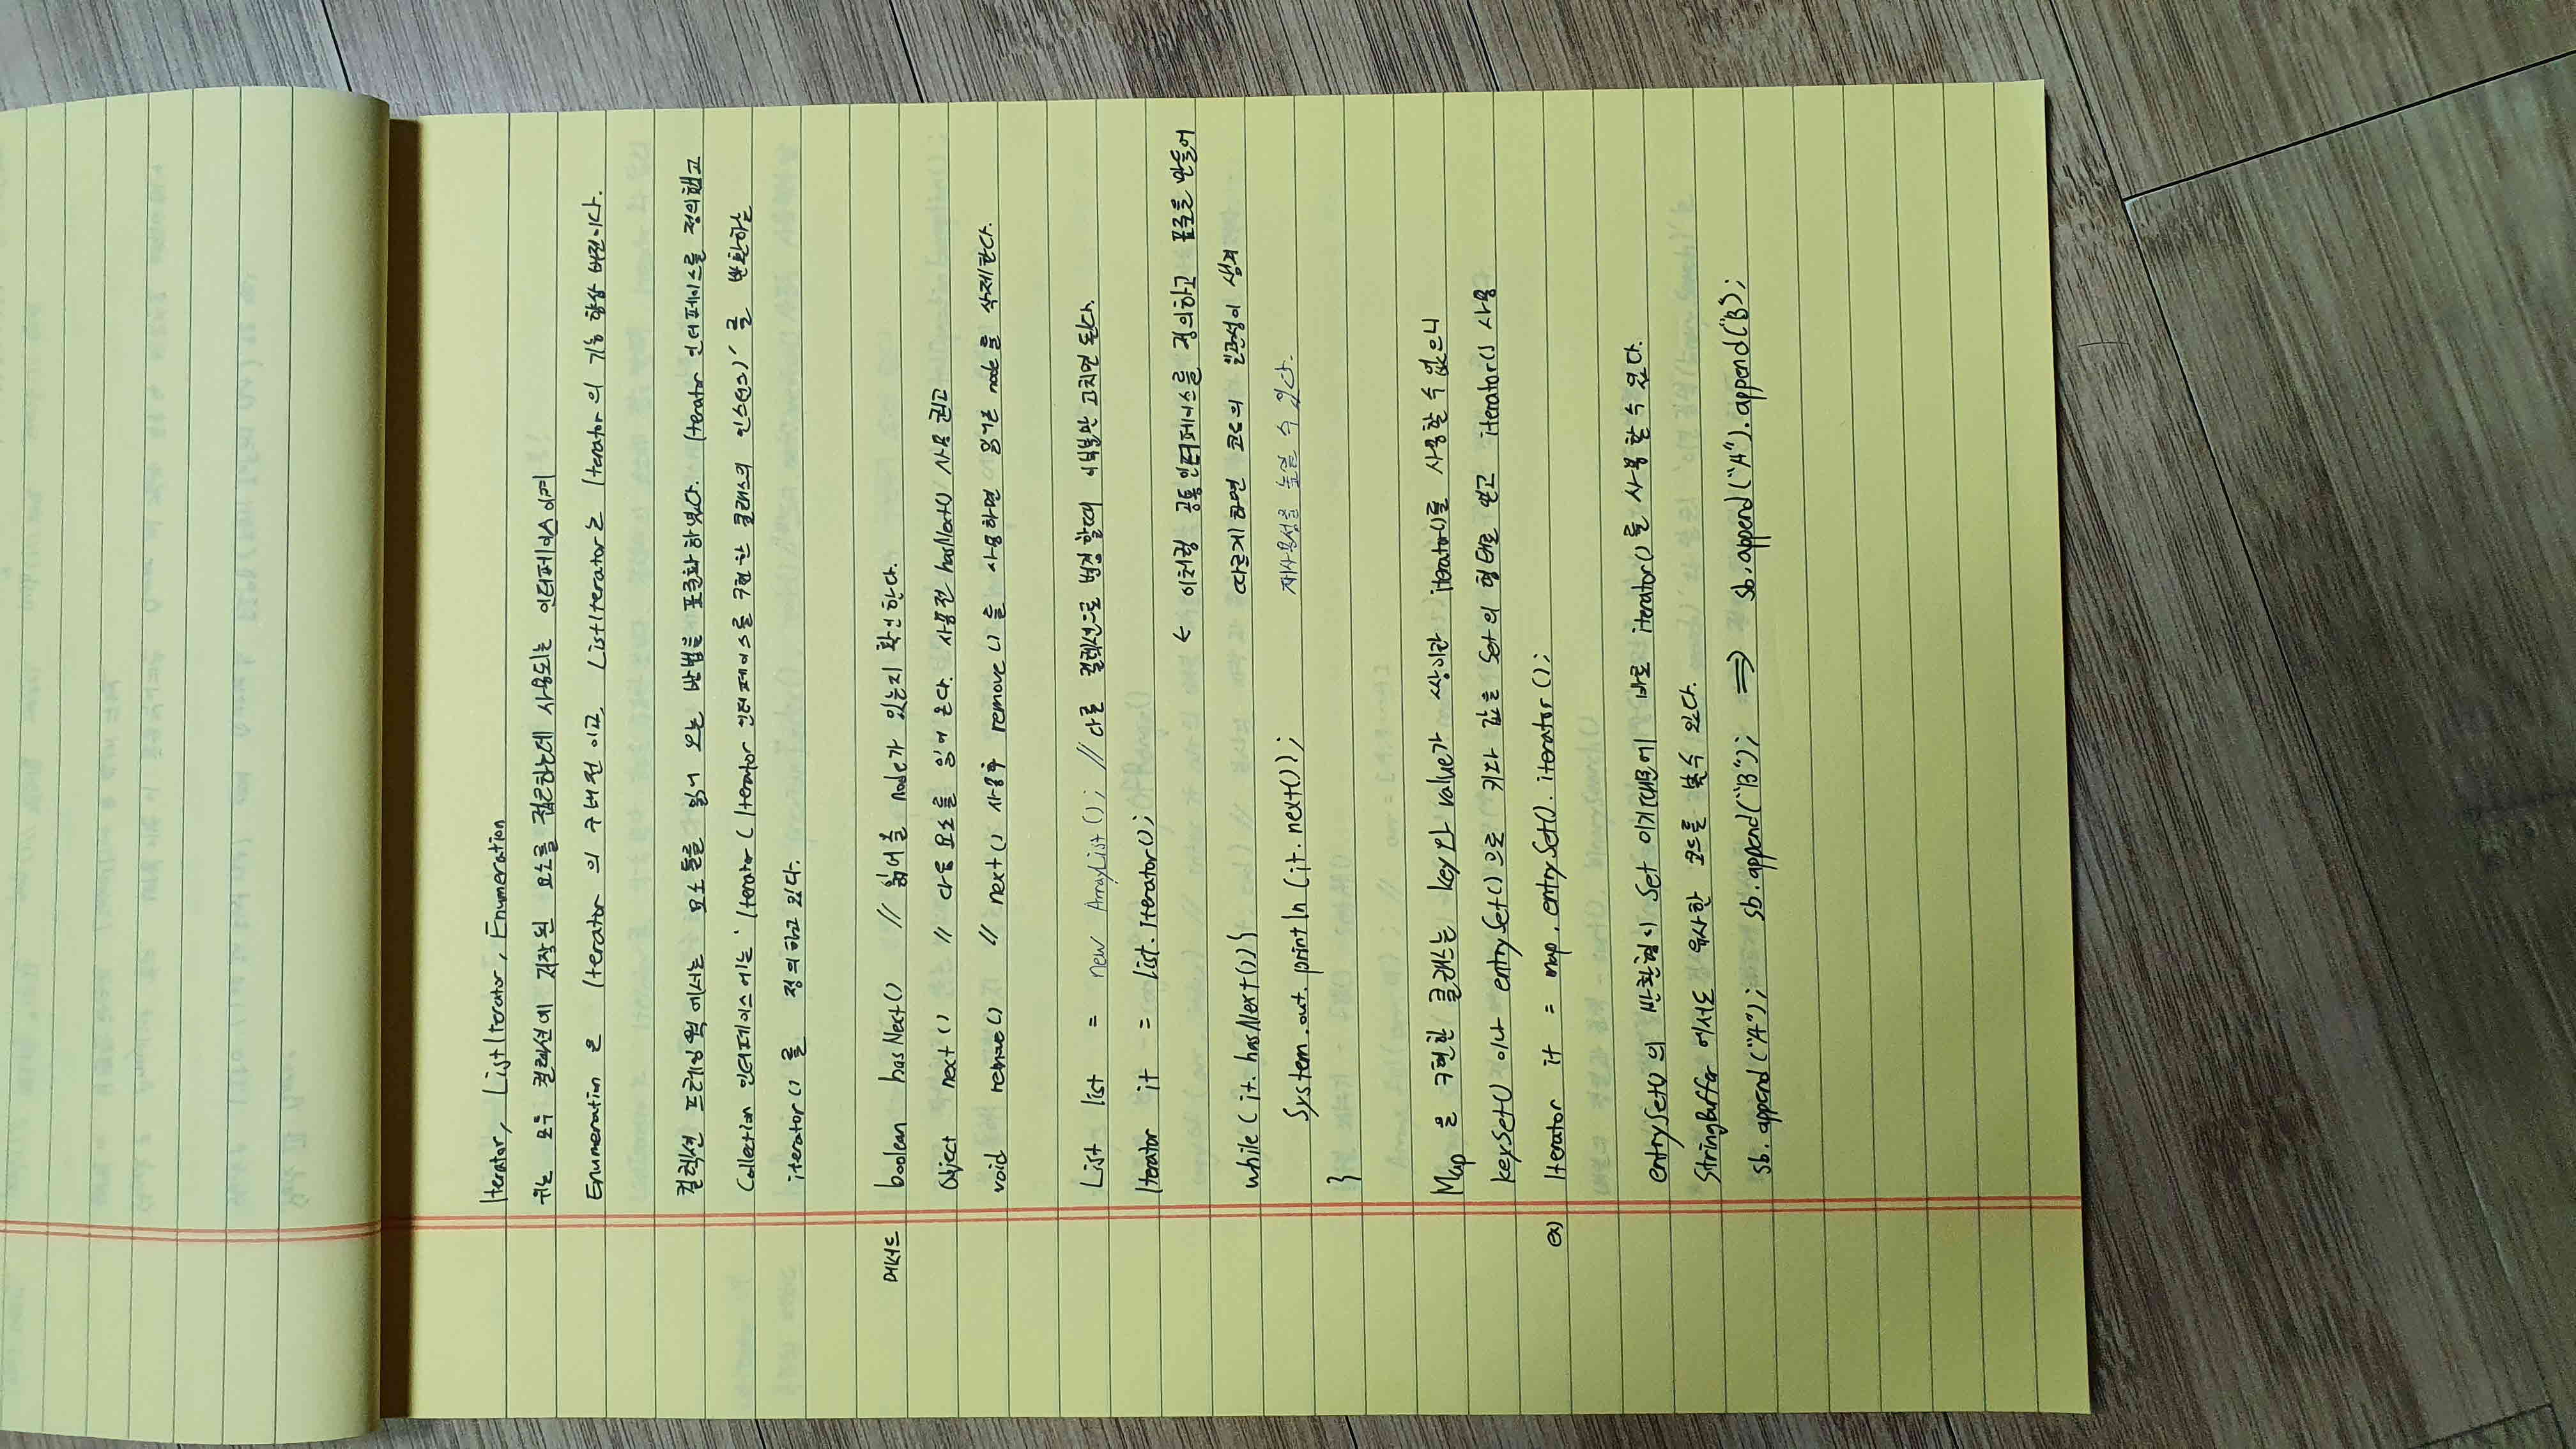 Iterator, ListIterator, Enumeration
위는 모두 컬렉션에 저장된 요소를 접근하는데 사용되는 인터페이스이며
Enumeration은 Iterator의 구버전이고, ListIterator는 Iterator의 기능 향상 버전이다.
컬렉션 프레임웍에서는 요소들을 읽어 오는 방법을 표준화 하였다. Iterator 인터페이스를 정의했고
Collection 인터페이스에는 'Iterator (Iterator 인터페이스를 구현한 클래스의 인스턴스)'를 반환하는
iterator()를 정의하고 있다.
메서드 boolean hasNext() // 읽어올 node가 있는지 확인한다.
Object next() // 다음 요소를 읽어 온다. 사용전 hasNext() 사용 권고
void remove() // next() 사용후 remove()를 사용하면 읽어온 node를 삭제한다.
List list = new ArrayList(); // 다른 컬렉션으로 변경할때 이부분만 고치면 된다.
Iterator it = list.iterator();
← 이처럼 공통인터페이스를 정의하고 표준을 만들어
while (it.hasNext()){ 따르게 하면 코드의 일관성이 생겨
System.out.println(it.next()); 재사용성을 높일 수 있다.
}
Map을 구현한 클래스는 key와 value가 쌍이란 iterator()를 사용할 수 없으니
keySet() 이나 entrySet()으로 키와 값을 Set의 형태로 얻고 iterator() 사용
ex) Iterator it = map.entrySet().iterator();
entrySet()의 반환형이 Set 이기때문에 바로 iterator()를 사용할 수 있다.
StringBuffer에서도 유사한 코드를 볼수 있다.
sb.append("A"); sb.append("B"); ⇒ sb.append("A").append("B);